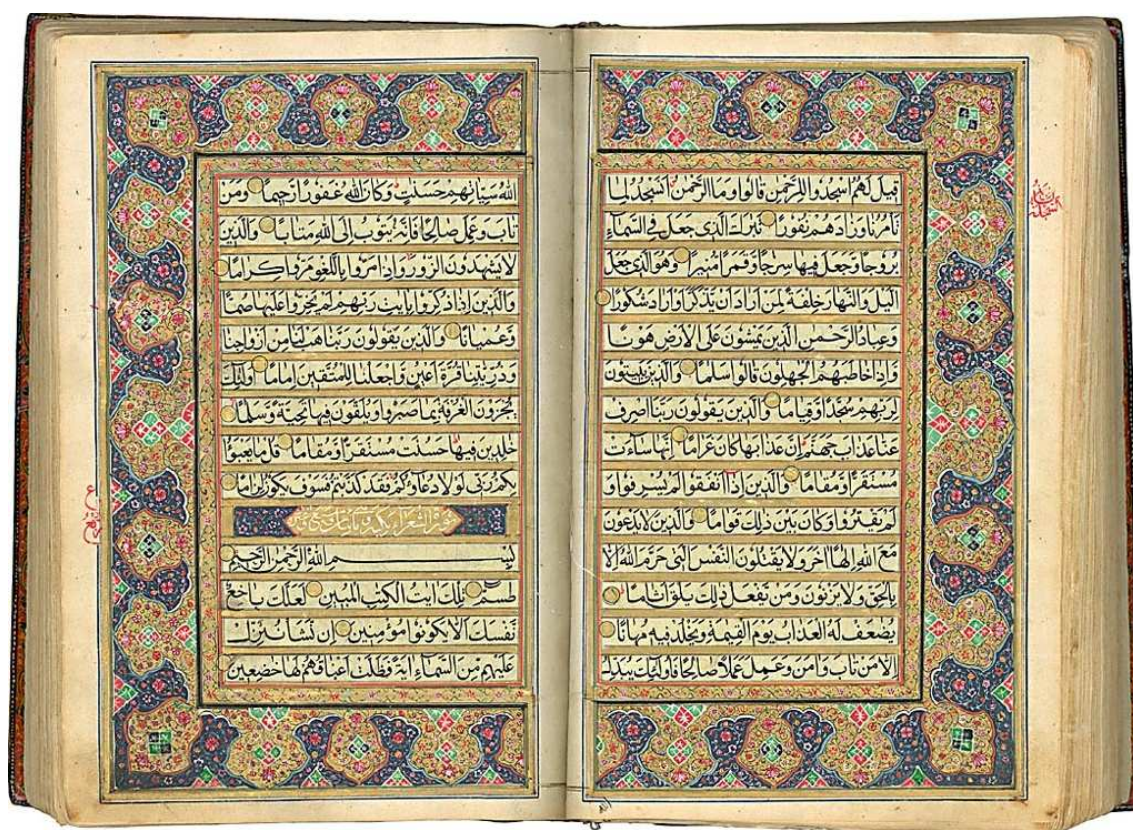 قِيلَ لَهُمُ اسْجُدُوا لِلرَّحْمٰنِ قَالُوا وَمَا الرَّحْمٰنُ أَنَسْجُدُ لِمَا
تَأْمُرُنَا وَزَادَهُمْ نُفُورًا تَبٰرَكَ الَّذِي جَعَلَ فِي السَّمَآءِ
بُرُوجًا وَجَعَلَ فِيهَا سِرٰجًا وَقَمَرًا مُنِيرًا وَهُوَ الَّذِي جَعَلَ
الَّيْلَ وَالنَّهَارَ خِلْفَةً لِمَنْ أَرَادَ أَنْ يَذَّكَّرَ أَوْ أَرَادَ شُكُورًا
وَعِبَادُ الرَّحْمٰنِ الَّذِينَ يَمْشُونَ عَلَى الْأَرْضِ هَوْنًا
وَإِذَا خَاطَبَهُمُ الْجٰهِلُونَ قَالُوا سَلٰمًا وَالَّذِينَ يَبِيتُونَ
لِرَبِّهِمْ سُجَّدًا وَقِيَامًا وَالَّذِينَ يَقُولُونَ رَبَّنَا اصْرِفْ
عَنَّا عَذَابَ جَهَنَّمَ إِنَّ عَذَابَهَا كَانَ غَرَامًا إِنَّهَا سَآءَتْ
مُسْتَقَرًّا وَمُقَامًا وَالَّذِينَ إِذَآ أَنْفَقُوا لَمْ يُسْرِفُوا وَ
لَمْ يَقْتُرُوا وَكَانَ بَيْنَ ذٰلِكَ قَوَامًا وَالَّذِينَ لَا يَدْعُونَ
مَعَ اللهِ إِلٰهًا اٰخَرَ وَلَا يَقْتُلُونَ النَّفْسَ الَّتِي حَرَّمَ اللهُ إِلَّا
بِالْحَقِّ وَلَا يَزْنُونَ وَمَنْ يَفْعَلْ ذٰلِكَ يَلْقَ أَثَامًا
يُضٰعَفْ لَهُ الْعَذَابُ يَوْمَ الْقِيٰمَةِ وَيَخْلُدْ فِيهِ مُهَانًا
إِلَّا مَنْ تَابَ وَاٰمَنَ وَعَمِلَ عَمَلًا صَالِحًا فَأُولٰئِكَ يُبَدِّلُ
اللهُ سَيِّاٰتِهِمْ حَسَنٰتٍ وَكَانَ اللهُ غَفُورًا رَحِيمًا وَمَنْ
تَابَ وَعَمِلَ صَالِحًا فَإِنَّهُ يَتُوبُ إِلَى اللهِ مَتَابًا وَالَّذِينَ
لَا يَشْهَدُونَ الزُّورَ وَإِذَا مَرُّوا بِاللَّغْوِ مَرُّوا كِرَامًا
وَالَّذِينَ إِذَا ذُكِّرُوا بِاٰيٰتِ رَبِّهِمْ لَمْ يَخِرُّوا عَلَيْهَا صُمًّا
وَعُمْيَانًا وَالَّذِينَ يَقُولُونَ رَبَّنَا هَبْ لَنَا مِنْ أَزْوَاجِنَا
وَذُرِّيّٰتِنَا قُرَّةَ أَعْيُنٍ وَاجْعَلْنَا لِلْمُتَّقِينَ إِمَامًا أُولٰئِكَ
يُجْزَوْنَ الْغُرْفَةَ بِمَا صَبَرُوا وَيُلَقَّوْنَ فِيهَا تَحِيَّةً وَسَلٰمًا
خٰلِدِينَ فِيهَا حَسُنَتْ مُسْتَقَرًّا وَمُقَامًا قُلْ مَا يَعْبَؤُا
بِكُمْ رَبِّي لَوْلَا دُعَآؤُكُمْ فَقَدْ كَذَّبْتُمْ فَسَوْفَ يَكُونُ لِزَامًا
الشعراء
بِسْمِ اللهِ الرَّحْمٰنِ الرَّحِيمِ
طٰسٓمٓ تِلْكَ اٰيٰتُ الْكِتٰبِ الْمُبِينِ لَعَلَّكَ بَاخِعٌ
نَفْسَكَ أَلَّا يَكُونُوا مُؤْمِنِينَ إِنْ نَشَأْ نُنَزِّلْ
عَلَيْهِمْ مِنَ السَّمَآءِ اٰيَةً فَظَلَّتْ أَعْنَاقُهُمْ لَهَا خٰضِعِينَ